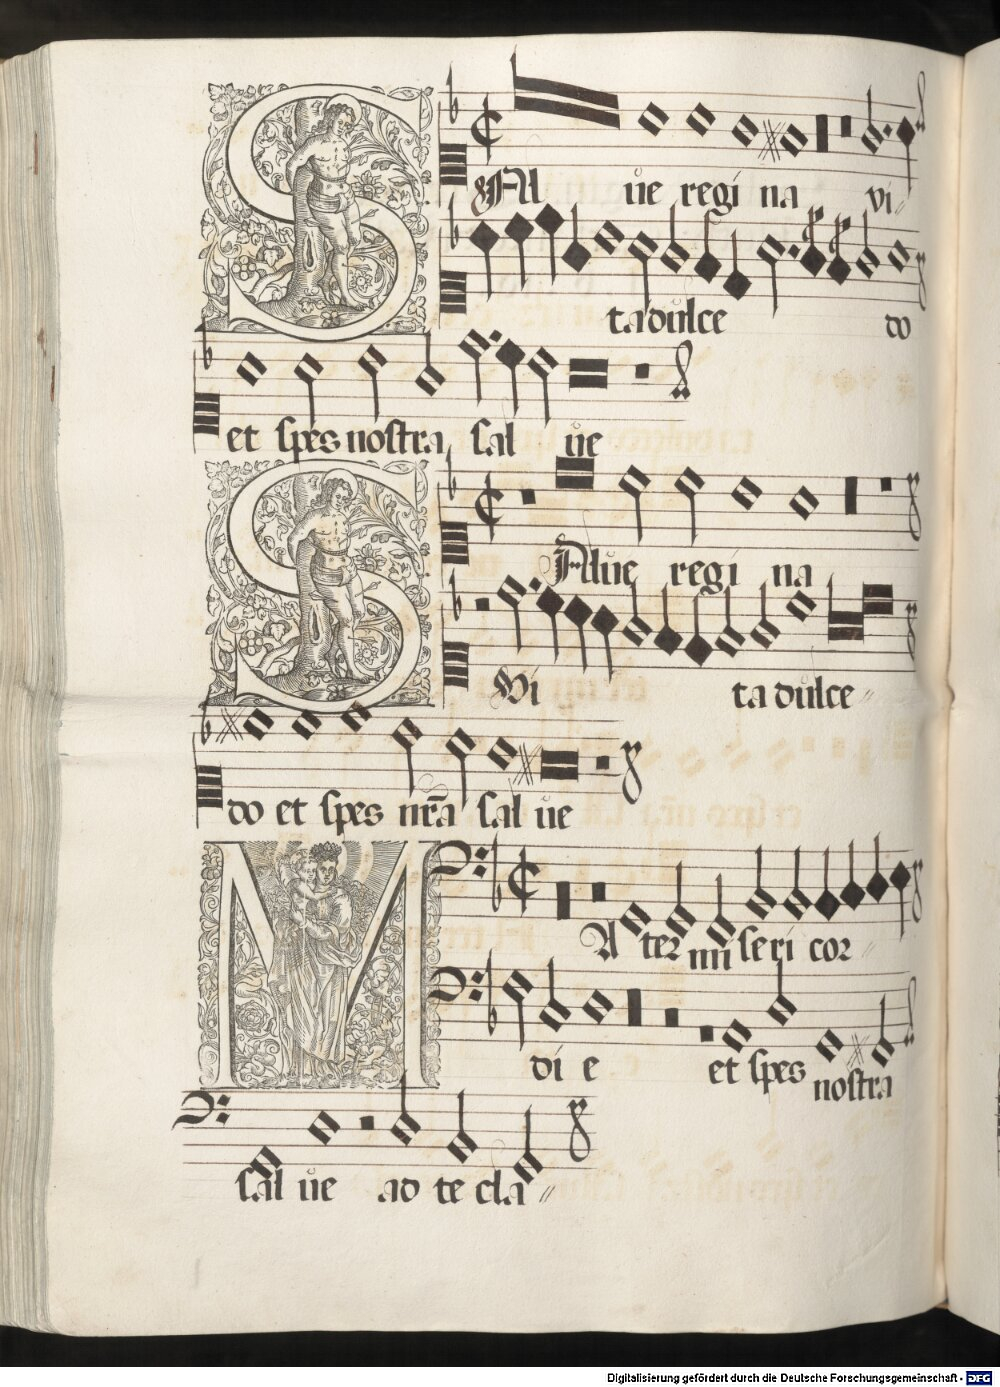 SAlue regina vi
ta dulce do
et spes nostra salue
SAlue regina
Vi ta dulce
do et spes nr̄a salue
MAter miseri cor
die et spes nostra
salue ad te cla
Digitalisierung gefördert durch die Deutsche Forschungsgemeinschaft - DFG